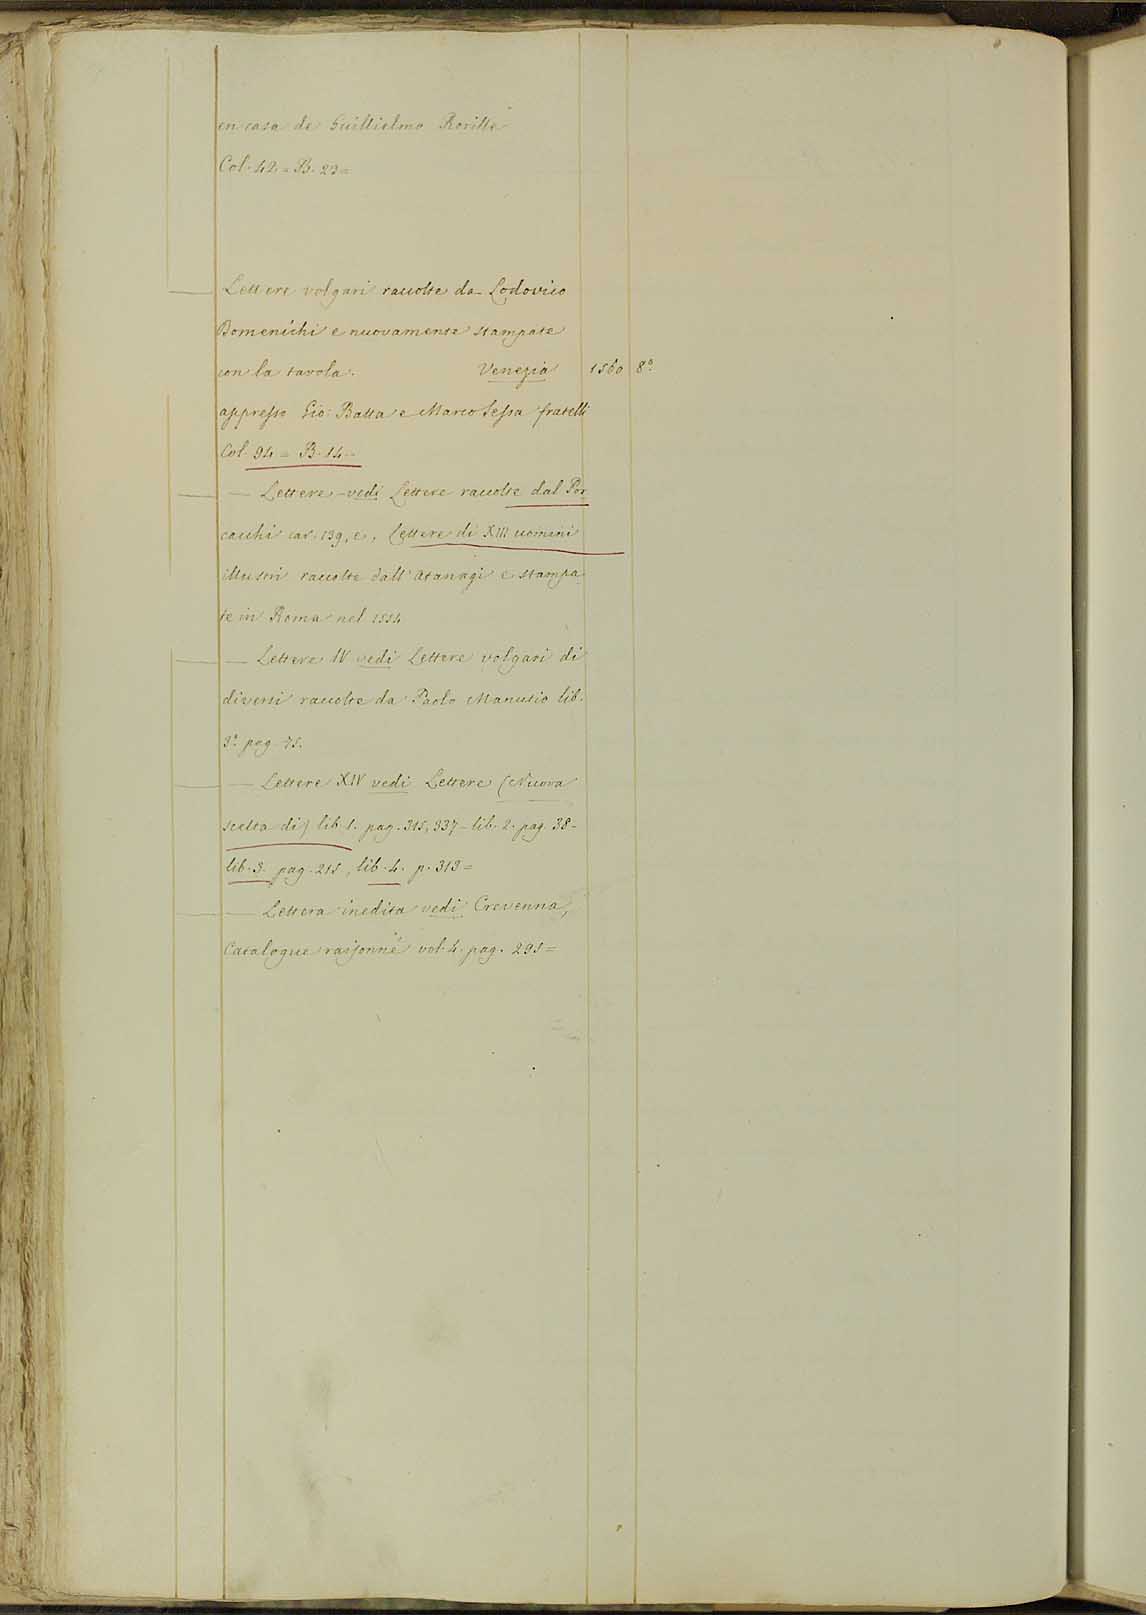 en casa de Guillielmo Roville
Col. 42 = B. 23 =
— Lettere volgari raccolte da Lodovico
Domenichi e nuovamente stampate
con la tavola. Venezia 1560 8°
appresso Gio: Batta e Marco Sessa fratelli
Col. 94 = B. 14 -
— — Lettere - vedi Lettere raccolte dal Por
cacchi car. 139, e, Lettere di XIII uomini
illustri raccolte dall' Atanagi e stampa
te in Roma nel 1554
— — Lettere IV vedi Lettere volgari di
diversi raccolte da Paolo Manutio lib.
3° pag. 75.
— — Lettere XIV vedi Lettere (Nuova
scelta di) lib. 1. pag. 315, 337 - lib. 2. pag. 38 -
lib. 3. pag. 215, lib. 4. p. 313 =
— — Lettera inedita vedi Crevenna,
Catalogue raisonné vol. 4. pag. 291 =